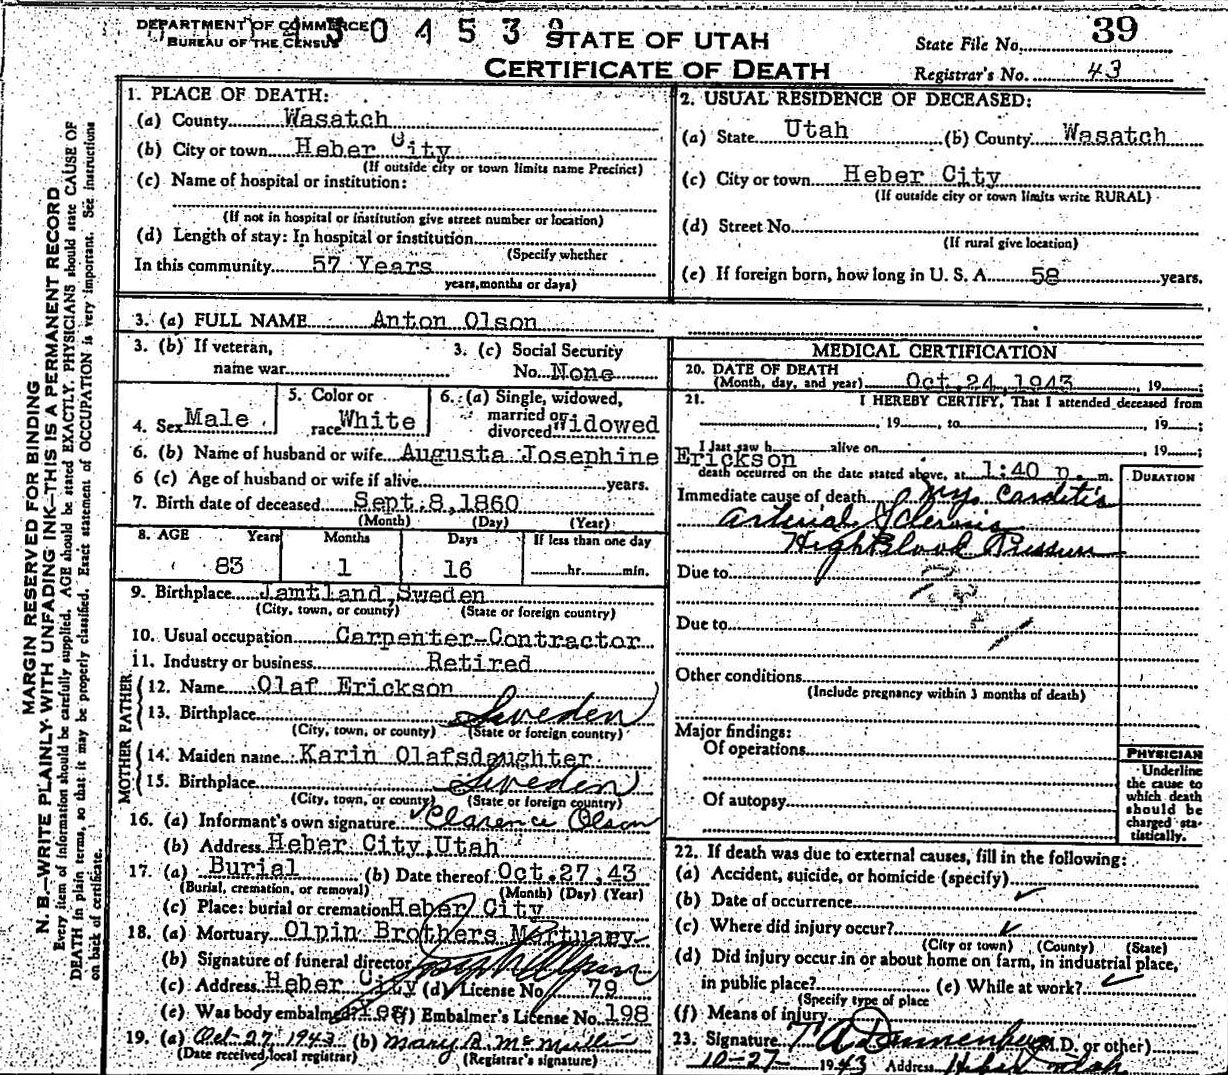 DEPARTMENT OF COMMERCE
BUREAU OF THE CENSUS
STATE OF UTAH
CERTIFICATE OF DEATH
State File No. 39
Registrar's No. 43
MARGIN RESERVED FOR BINDING
N. B.—WRITE PLAINLY WITH UNFADING INK—THIS IS A PERMANENT RECORD
Every item of information should be carefully supplied. AGE should be stated EXACTLY. PHYSICIANS should state CAUSE OF
DEATH in plain terms, so that it may be properly classified. Exact statement of OCCUPATION is very important. See instructions
on back of certificate.
1. PLACE OF DEATH:
(a) County Wasatch
(b) City or town Heber City
(If outside city or town limits name Precinct)
(c) Name of hospital or institution:
(If not in hospital or institution give street number or location)
(d) Length of stay: In hospital or institution
(Specify whether
In this community 57 Years
years, months or days)
2. USUAL RESIDENCE OF DECEASED:
(a) State Utah (b) County Wasatch
(c) City or town Heber City
(If outside city or town limits write RURAL)
(d) Street No.
(If rural give location)
(e) If foreign born, how long in U. S. A. 58 years.
3. (a) FULL NAME Anton Olson
3. (b) If veteran,
name war
3. (c) Social Security
No. None
4. Sex Male
5. Color or
race White
6. (a) Single, widowed,
married or
divorced Widowed
6. (b) Name of husband or wife Augusta Josephine Erickson
6 (c) Age of husband or wife if alive years.
7. Birth date of deceased Sept. 8, 1860
(Month) (Day) (Year)
8. AGE Years Months Days If less than one day
83 1 16 hr. min.
9. Birthplace Jamtland, Sweden
(City, town, or county) (State or foreign country)
10. Usual occupation Carpenter-Contractor
11. Industry or business Retired
FATHER
12. Name Olaf Erickson
13. Birthplace Sweden
(City, town, or county) (State or foreign country)
MOTHER
14. Maiden name Karin Olafsdaughter
15. Birthplace Sweden
(City, town, or county) (State or foreign country)
16. (a) Informant's own signature Clarence Olson
(b) Address Heber City, Utah
17. (a) Burial (b) Date thereof Oct. 27, 43
(Burial, cremation, or removal) (Month) (Day) (Year)
(c) Place: burial or cremation Heber City
18. (a) Mortuary Olpin Brothers Mortuary
(b) Signature of funeral director
(c) Address Heber City (d) License No. 79
(e) Was body embalmed Yes (f) Embalmer's License No. 198
19. (a) Oct-27, 1943 (b) Mary B. McMullin
(Date received local registrar) (Registrar's signature)
MEDICAL CERTIFICATION
20. DATE OF DEATH
(Month, day, and year) Oct. 24, 1943, 19 ;
21. I HEREBY CERTIFY, That I attended deceased from
, 19 , to , 19 ;
I last saw h alive on , 19 ;
death occurred on the date stated above, at 1:40 p. m.
DURATION
Immediate cause of death Myo Carditis
Arterial Sclerosis
High Blood Pressure
Due to
Due to
Other conditions
(Include pregnancy within 3 months of death)
Major findings:
Of operations
Of autopsy
PHYSICIAN
Underline
the cause to
which death
should be
charged sta-
tistically.
22. If death was due to external causes, fill in the following:
(a) Accident, suicide, or homicide (specify)
(b) Date of occurrence
(c) Where did injury occur?
(City or town) (County) (State)
(d) Did injury occur in or about home on farm, in industrial place,
in public place? (e) While at work?
(Specify type of place
(f) Means of injury
23. Signature T A Dannenberg (M.D. or other)
10-27- 1943 Address Heber Utah